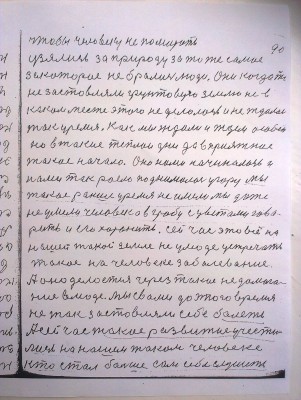 чтобы человеку не помирать
90
взялись за природу за тоже самое
за которое не брались люди. Они когда то
не заставляли грунтовую землю не в
каком месте этого не делалось и не ждалось
такое время. Как мы ждали и ждем особен
но в такие теплые дни до вприятное
такое начало. Оно нами начиналось а
нами так рано поднималось угору мы
такое раньше время не имели мы даже
не умели человека в гробу с цветами гово
рить и его хоронить. Сейчас это всё на
нашей такой земле не умоде встречать
такое на человеке заболевание.
А оно делается через такие не домога
ние в людей. Мы с вами до этого время
не так заставляли себе болеть
А сейчас такое развитие
лися на нашем таком человеке
кто стал больше сам себе слушать